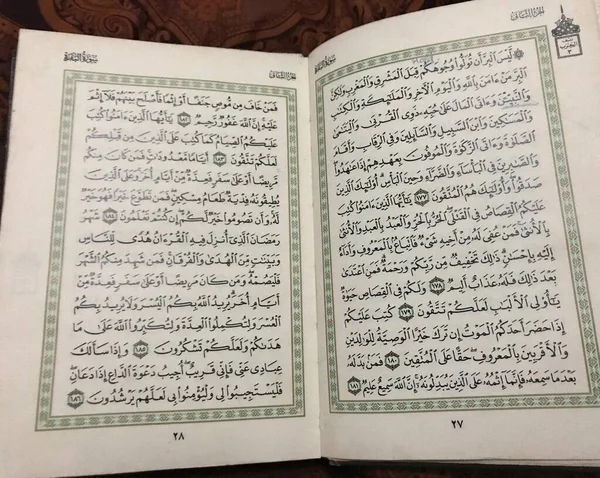 الجزء الثانى
سورة البقرة
نصف
الحزب
٣
۞ لَّيْسَ ٱلْبِرَّ أَن تُوَلُّوا۟ وُجُوهَكُمْ قِبَلَ ٱلْمَشْرِقِ وَٱلْمَغْرِبِ وَلَٰكِنَّ
ٱلْبِرَّ مَنْ ءَامَنَ بِٱللَّهِ وَٱلْيَوْمِ ٱلْءَاخِرِ وَٱلْمَلَٰٓئِكَةِ وَٱلْكِتَٰبِ
وَٱلنَّبِيِّـۧنَ وَءَاتَى ٱلْمَالَ عَلَىٰ حُبِّهِۦ ذَوِى ٱلْقُرْبَىٰ وَٱلْيَتَٰمَىٰ
وَٱلْمَسَٰكِينَ وَٱبْنَ ٱلسَّبِيلِ وَٱلسَّآئِلِينَ وَفِى ٱلرِّقَابِ وَأَقَامَ
ٱلصَّلَوٰةَ وَءَاتَى ٱلزَّكَوٰةَ وَٱلْمُوفُونَ بِعَهْدِهِمْ إِذَا عَٰهَدُوا۟
وَٱلصَّٰبِرِينَ فِى ٱلْبَأْسَآءِ وَٱلضَّرَّآءِ وَحِينَ ٱلْبَأْسِ أُو۟لَٰٓئِكَ ٱلَّذِينَ
صَدَقُوا۟ وَأُو۟لَٰٓئِكَ هُمُ ٱلْمُتَّقُونَ ١٧٧ يَٰٓأَيُّهَا ٱلَّذِينَ ءَامَنُوا۟ كُتِبَ
عَلَيْكُمُ ٱلْقِصَاصُ فِى ٱلْقَتْلَى ٱلْحُرُّ بِٱلْحُرِّ وَٱلْعَبْدُ بِٱلْعَبْدِ وَٱلْأُنثَىٰ
بِٱلْأُنثَىٰ فَمَنْ عُفِىَ لَهُۥ مِنْ أَخِيهِ شَىْءٌ فَٱتِّبَاعٌۢ بِٱلْمَعْرُوفِ وَأَدَآءٌ
إِلَيْهِ بِإِحْسَٰنٍ ذَٰلِكَ تَخْفِيفٌ مِّن رَّبِّكُمْ وَرَحْمَةٌ فَمَنِ ٱعْتَدَىٰ
بَعْدَ ذَٰلِكَ فَلَهُۥ عَذَابٌ أَلِيمٌ ١٧٨ وَلَكُمْ فِى ٱلْقِصَاصِ حَيَوٰةٌ
يَٰٓأُو۟لِى ٱلْأَلْبَٰبِ لَعَلَّكُمْ تَتَّقُونَ ١٧٩ كُتِبَ عَلَيْكُمْ
إِذَا حَضَرَ أَحَدَكُمُ ٱلْمَوْتُ إِن تَرَكَ خَيْرًا ٱلْوَصِيَّةُ لِلْوَٰلِدَيْنِ
وَٱلْأَقْرَبِينَ بِٱلْمَعْرُوفِ حَقًّا عَلَى ٱلْمُتَّقِينَ ١٨٠ فَمَنۢ بَدَّلَهُۥ
بَعْدَ مَا سَمِعَهُۥ فَإِنَّمَآ إِثْمُهُۥ عَلَى ٱلَّذِينَ يُبَدِّلُونَهُۥٓ إِنَّ ٱللَّهَ سَمِيعٌ عَلِيمٌ ١٨١
٢٧
الجزء الثانى
سورة البقرة
فَمَنْ خَافَ مِن مُّوصٍ جَنَفًا أَوْ إِثْمًا فَأَصْلَحَ بَيْنَهُمْ فَلَآ إِثْمَ
عَلَيْهِ إِنَّ ٱللَّهَ غَفُورٌ رَّحِيمٌ ١٨٢ يَٰٓأَيُّهَا ٱلَّذِينَ ءَامَنُوا۟ كُتِبَ
عَلَيْكُمُ ٱلصِّيَامُ كَمَا كُتِبَ عَلَى ٱلَّذِينَ مِن قَبْلِكُمْ
لَعَلَّكُمْ تَتَّقُونَ ١٨٣ أَيَّامًا مَّعْدُودَٰتٍ فَمَن كَانَ مِنكُم
مَّرِيضًا أَوْ عَلَىٰ سَفَرٍ فَعِدَّةٌ مِّنْ أَيَّامٍ أُخَرَ وَعَلَى ٱلَّذِينَ
يُطِيقُونَهُۥ فِدْيَةٌ طَعَامُ مِسْكِينٍ فَمَن تَطَوَّعَ خَيْرًا فَهُوَ خَيْرٌ
لَّهُۥ وَأَن تَصُومُوا۟ خَيْرٌ لَّكُمْ إِن كُنتُمْ تَعْلَمُونَ ١٨٤ شَهْرُ
رَمَضَانَ ٱلَّذِىٓ أُنزِلَ فِيهِ ٱلْقُرْءَانُ هُدًى لِّلنَّاسِ
وَبَيِّنَٰتٍ مِّنَ ٱلْهُدَىٰ وَٱلْفُرْقَانِ فَمَن شَهِدَ مِنكُمُ ٱلشَّهْرَ
فَلْيَصُمْهُ وَمَن كَانَ مَرِيضًا أَوْ عَلَىٰ سَفَرٍ فَعِدَّةٌ مِّنْ
أَيَّامٍ أُخَرَ يُرِيدُ ٱللَّهُ بِكُمُ ٱلْيُسْرَ وَلَا يُرِيدُ بِكُمُ
ٱلْعُسْرَ وَلِتُكْمِلُوا۟ ٱلْعِدَّةَ وَلِتُكَبِّرُوا۟ ٱللَّهَ عَلَىٰ مَا
هَدَىٰكُمْ وَلَعَلَّكُمْ تَشْكُرُونَ ١٨٥ وَإِذَا سَأَلَكَ
عِبَادِى عَنِّى فَإِنِّى قَرِيبٌ أُجِيبُ دَعْوَةَ ٱلدَّاعِ إِذَا دَعَانِ
فَلْيَسْتَجِيبُوا۟ لِى وَلْيُؤْمِنُوا۟ بِى لَعَلَّهُمْ يَرْشُدُونَ ١٨٦
٢٨